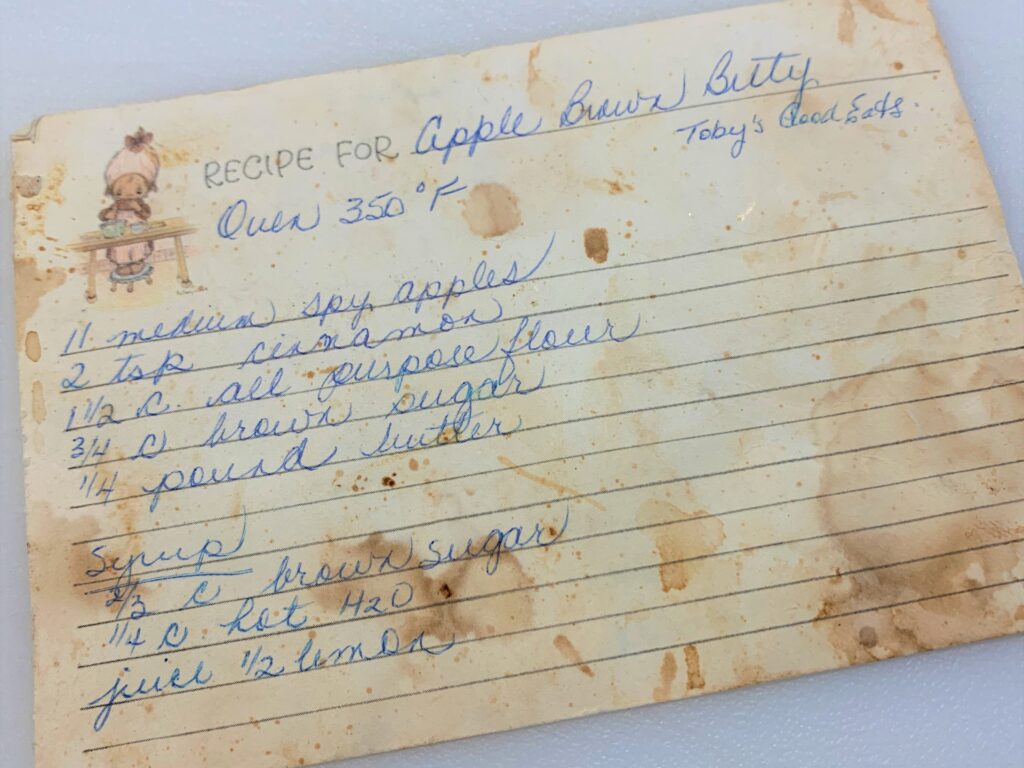 RECIPE FOR Apple Brown Betty
Toby's Good Eats.
Oven 350°F
11 medium spy apples
2 tsp cinnamon
1 1/2 c. all purpose flour
3/4 c brown sugar
1/4 pound butter
Syrup
2/3 c brown sugar
1/4 c hot H2O
juice 1/2 lemon